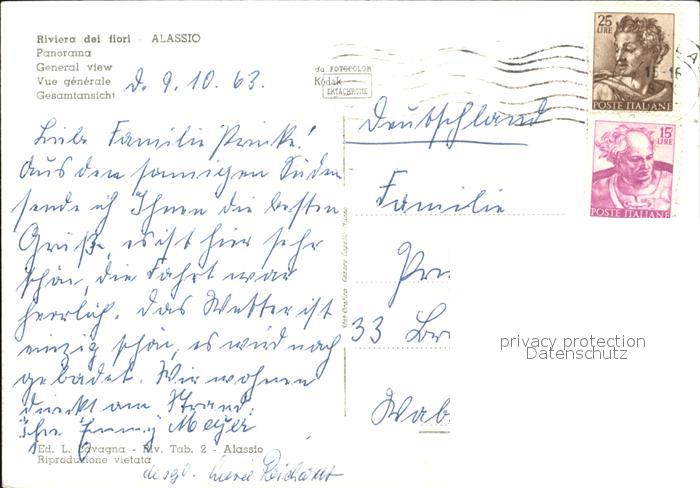 Riviera dei fiori - ALASSIO
Panorama
General view
Vue générale
Gesamtansicht
d. 9.10.63.
da FOTOCOLOR
Kodak
EKTACHROME
25 LIRE
POSTE ITALIANE
15 LIRE
POSTE ITALIANE
Liebe Familie Prinke!
Aus dem sonnigen Süden
sende ich Ihnen die besten
Grüße, es ist hier sehr
schön, die Fahrt war
herrlich. Das Wetter ist
einzig schön, es wird noch
gebadet. Wir wohnen
direkt am Strand.
Ihre Emmy Meyer
desgl. Reichardt
Deutschland
Familie
Pri
33 Br
Wab
privacy protection
Datenschutz
Ed. L. Lavagna - Riv. Tab. 2 - Alassio
Riproduzione vietata